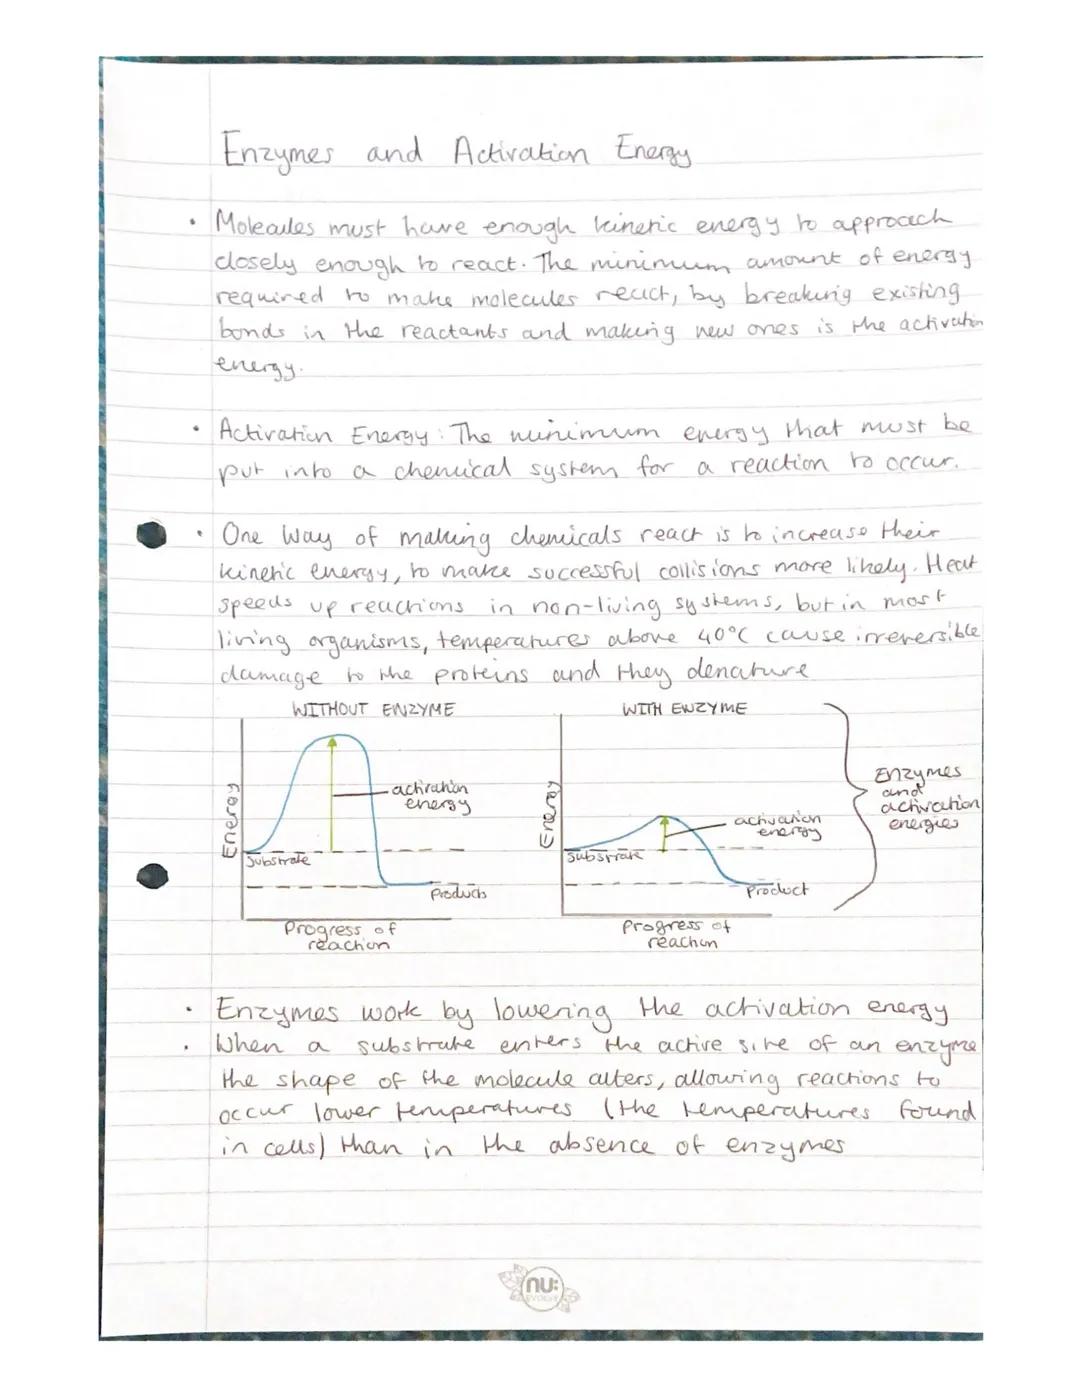 Enzymes and Activation Energy
• Molecules must have enough kinetic energy to approach
closely enough to react. The minimum amount of energy
required to make molecules react, by breaking existing
bonds in the reactants and making new ones is the activation
energy.
• Activation Energy: The minimum energy that must be
put into a chemical system for a reaction to occur.
• One way of making chemicals react is to increase their
kinetic energy, to make successful collisions more likely. Heat
speeds up reactions in non-living systems, but in most
living organisms, temperatures above 40°C cause irreversible
damage to the proteins and they denature
WITHOUT ENZYME
Energy
activation
energy
Substrate
Products
Progress of
reaction
WITH ENZYME
Energy
activation
energy
Substrate
Product
Progress of
reaction
Enzymes
and
activation
energies
• Enzymes work by lowering the activation energy
• When a substrate enters the active site of an enzyme
the shape of the molecule alters, allowing reactions to
occur lower temperatures (the temperatures found
in cells) than in the absence of enzymes
nu: